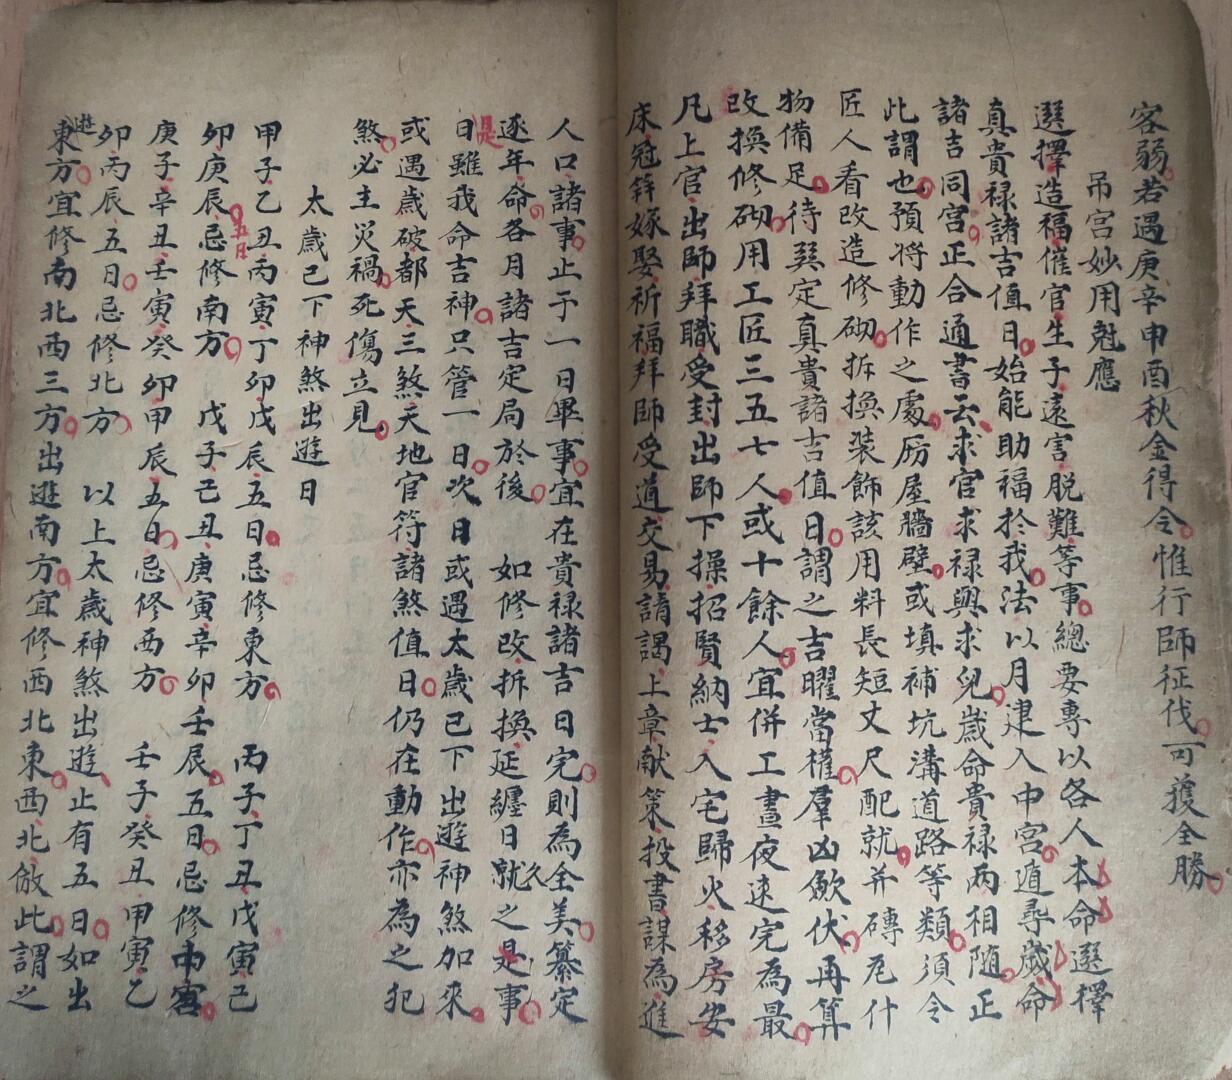 客弱若遇庚辛申酉秋金得令惟行師征伐可獲全勝
吊宮妙用尅應
選擇造福催官生子遠害脫難等事總要專以各人本命選擇
真貴祿諸吉值日始能助福於我法以月建入中宮遁尋歲命
諸吉同宮正合通書云求官求祿與求兒歲命貴祿兩相隨正
此謂也預將動作之處房屋牆壁或填補坑溝道路等類須令
匠人看改造修砌拆換裝飾該用料長短丈尺配就并磚瓦什
物備足待巽定真貴諸吉值日謂之吉曜當權羣凶歛伏再算
改換修砌用工匠三五七人或十餘人宜併工晝夜速完為最
凡上官出師拜職受封出師下操招賢納士入宅歸火移房安
床冠笄嫁娶祈福拜師受道交易請謁上章献策投書謀為進
人口諸事止于一日畢事宜在貴祿諸吉日完則為全美纂定
逐年命各月諸吉定局於後 如修改拆換延纏日久就之是事
日雖我命吉神只管一日次日或遇太歲已下出遊神煞加來
或遇歲破都天三煞天地官符諸煞值日仍在動作亦為之犯
煞必主災禍死傷立見
太歲已下神煞出遊日
甲子乙丑丙寅丁卯戊辰五日忌修東方 丙子丁丑戊寅己
卯庚辰五日忌修南方 戊子己丑庚寅辛卯壬辰五日忌修中宮
庚子辛丑壬寅癸卯甲辰五日忌修西方 壬子癸丑甲寅乙
卯丙辰五日忌修北方 以上太歲神煞出遊止有五日如出
遊東方宜修南北西三方出遊南方宜修西北東西北倣此謂之